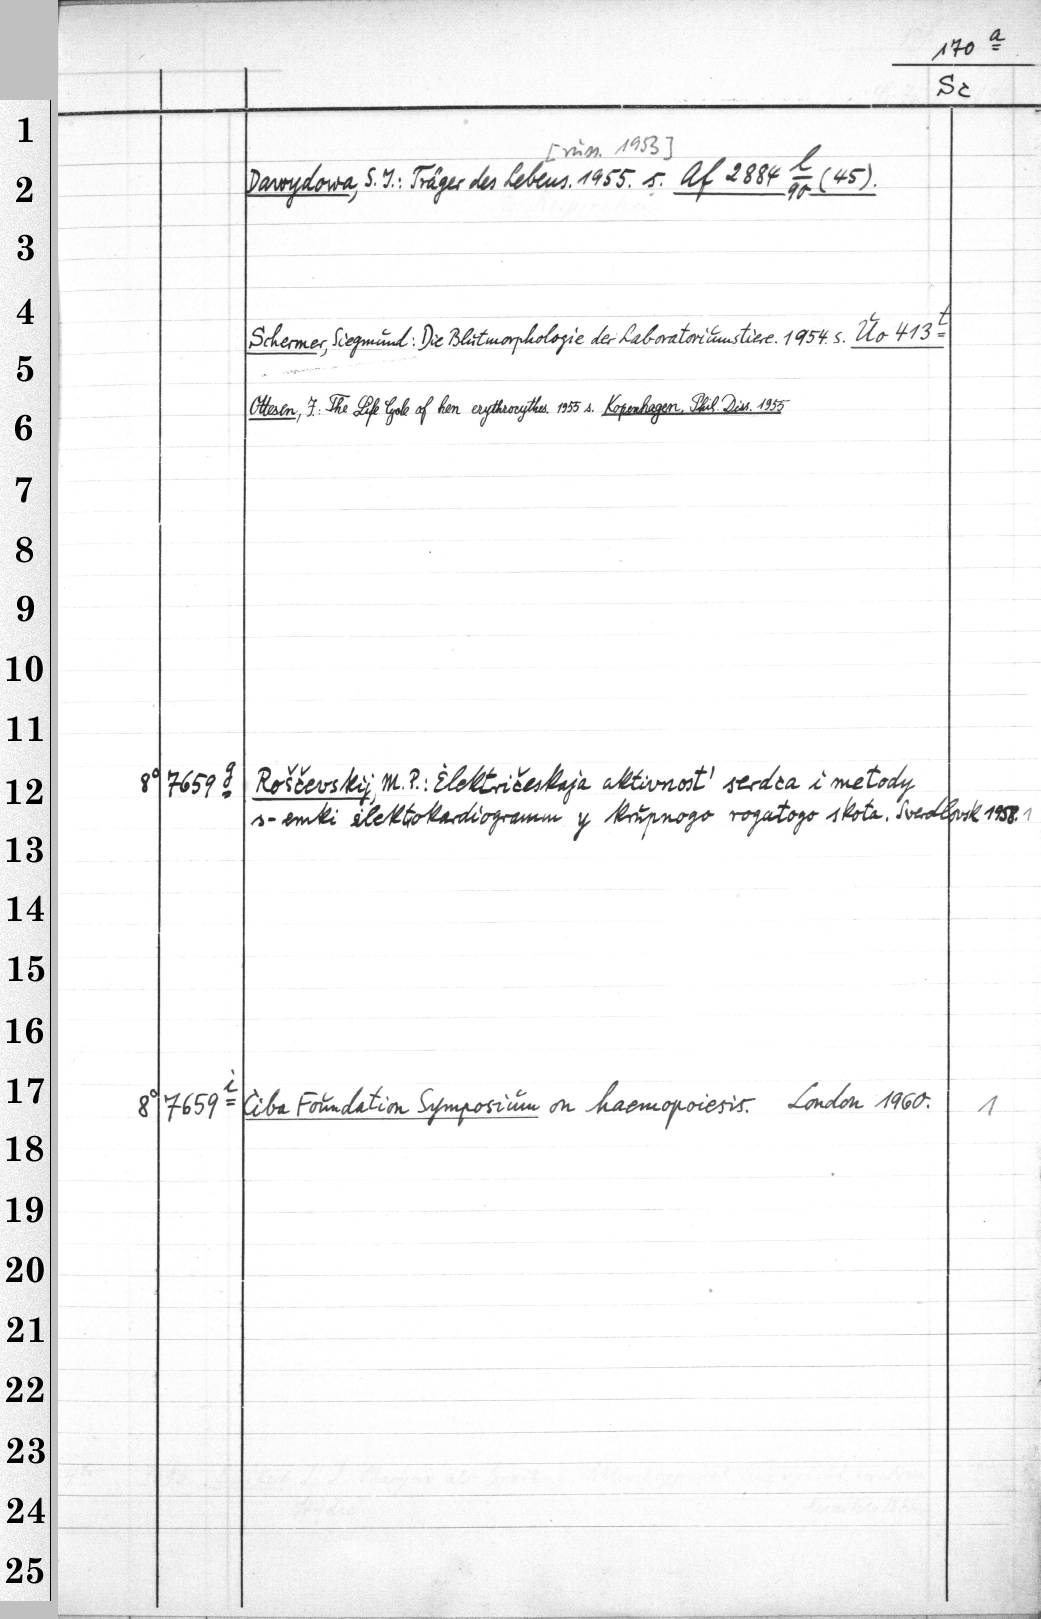 170 a
Sc
1
[russ. 1953]
2 Dawydowa, S. I.: Träger des Lebens. 1955. s. Af 2884 l/90 (45).
3
4
Schermer, Siegmund: Die Blutmorphologie der Laboratoriumstiere. 1954. s. Uo 413 t
5
6 Ottesen, J.: The Life Cycle of hen erythrocythes. 1955 s. Kopenhagen, Phil. Diss. 1955
7
8
9
10
11
12 8° 7659 g Roščevskij, M. P.: Električeskaja aktivnost' serdca i metody
s-emki elektrokardiogramm y krupnogo rogatogo skota. Sverdlovsk 1958. 1
13
14
15
16
17 8° 7659 i Ciba Foundation Symposium on haemopoiesis. London 1960. 1
18
19
20
21
22
23
24
25